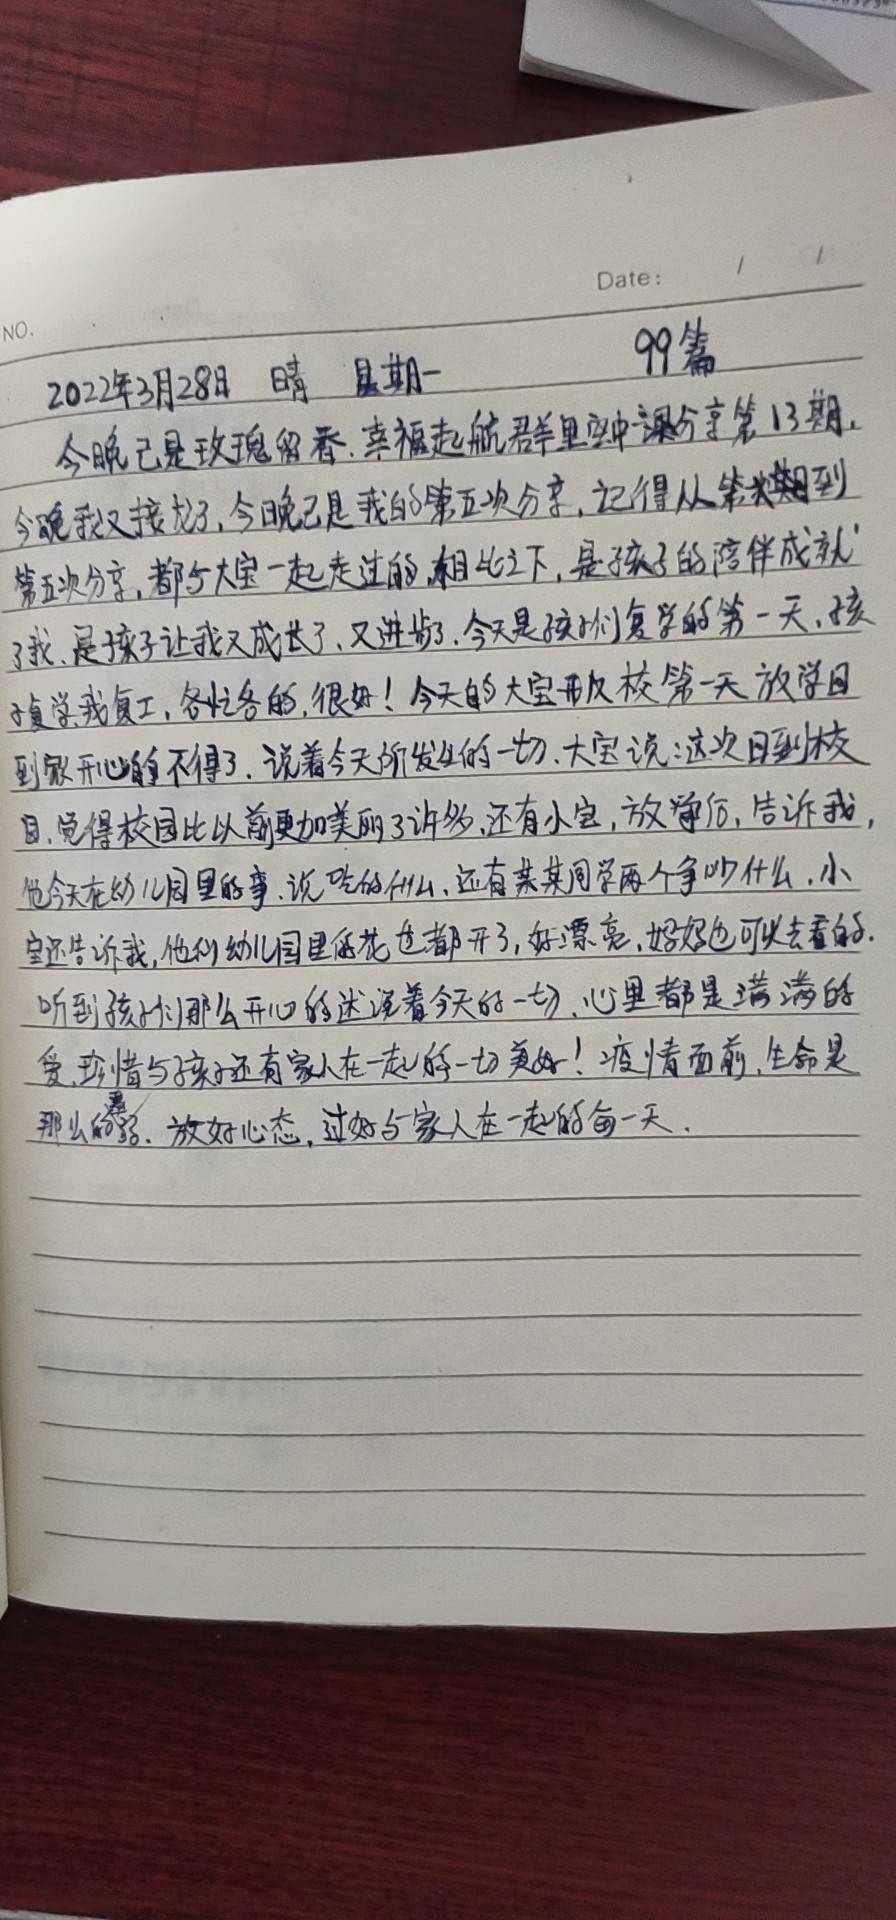 Date: / /
NO.
2022年3月28日 晴 星期一 99篇
今晚已是玫瑰留香.幸福起航群里空中课分享第13期.
今晚我又接龙了,今晚已是我的第五次分享,记得从第一期到
第五次分享,都与大宝一起走过的,相比之下,是孩子的陪伴成就
了我.是孩子让我又成长了,又进步了.今天是孩子们复学的第一天,孩
子复学我复工,各忙各的,很好!今天的大宝开反校第一天放学回
到家开心的不得了.说着今天所发生的一切.大宝说:这次回到校
园.觉得校园比以前更加美丽了许多.还有小宝,放学后,告诉我,
他今天在幼儿园里的事.说吃的什么,还有某某同学两个争吵什么.小
宝还告诉我,他们幼儿园里的花也都开了,好漂亮,妈妈也可以去看的.
听到孩子们那么开心的述说着今天的一切、心里都是满满的
爱.珍惜与孩子还有家人在一起的一切美好!疫情面前,生命是
那么的弱.放好心态,过好与家人在一起的每一天.